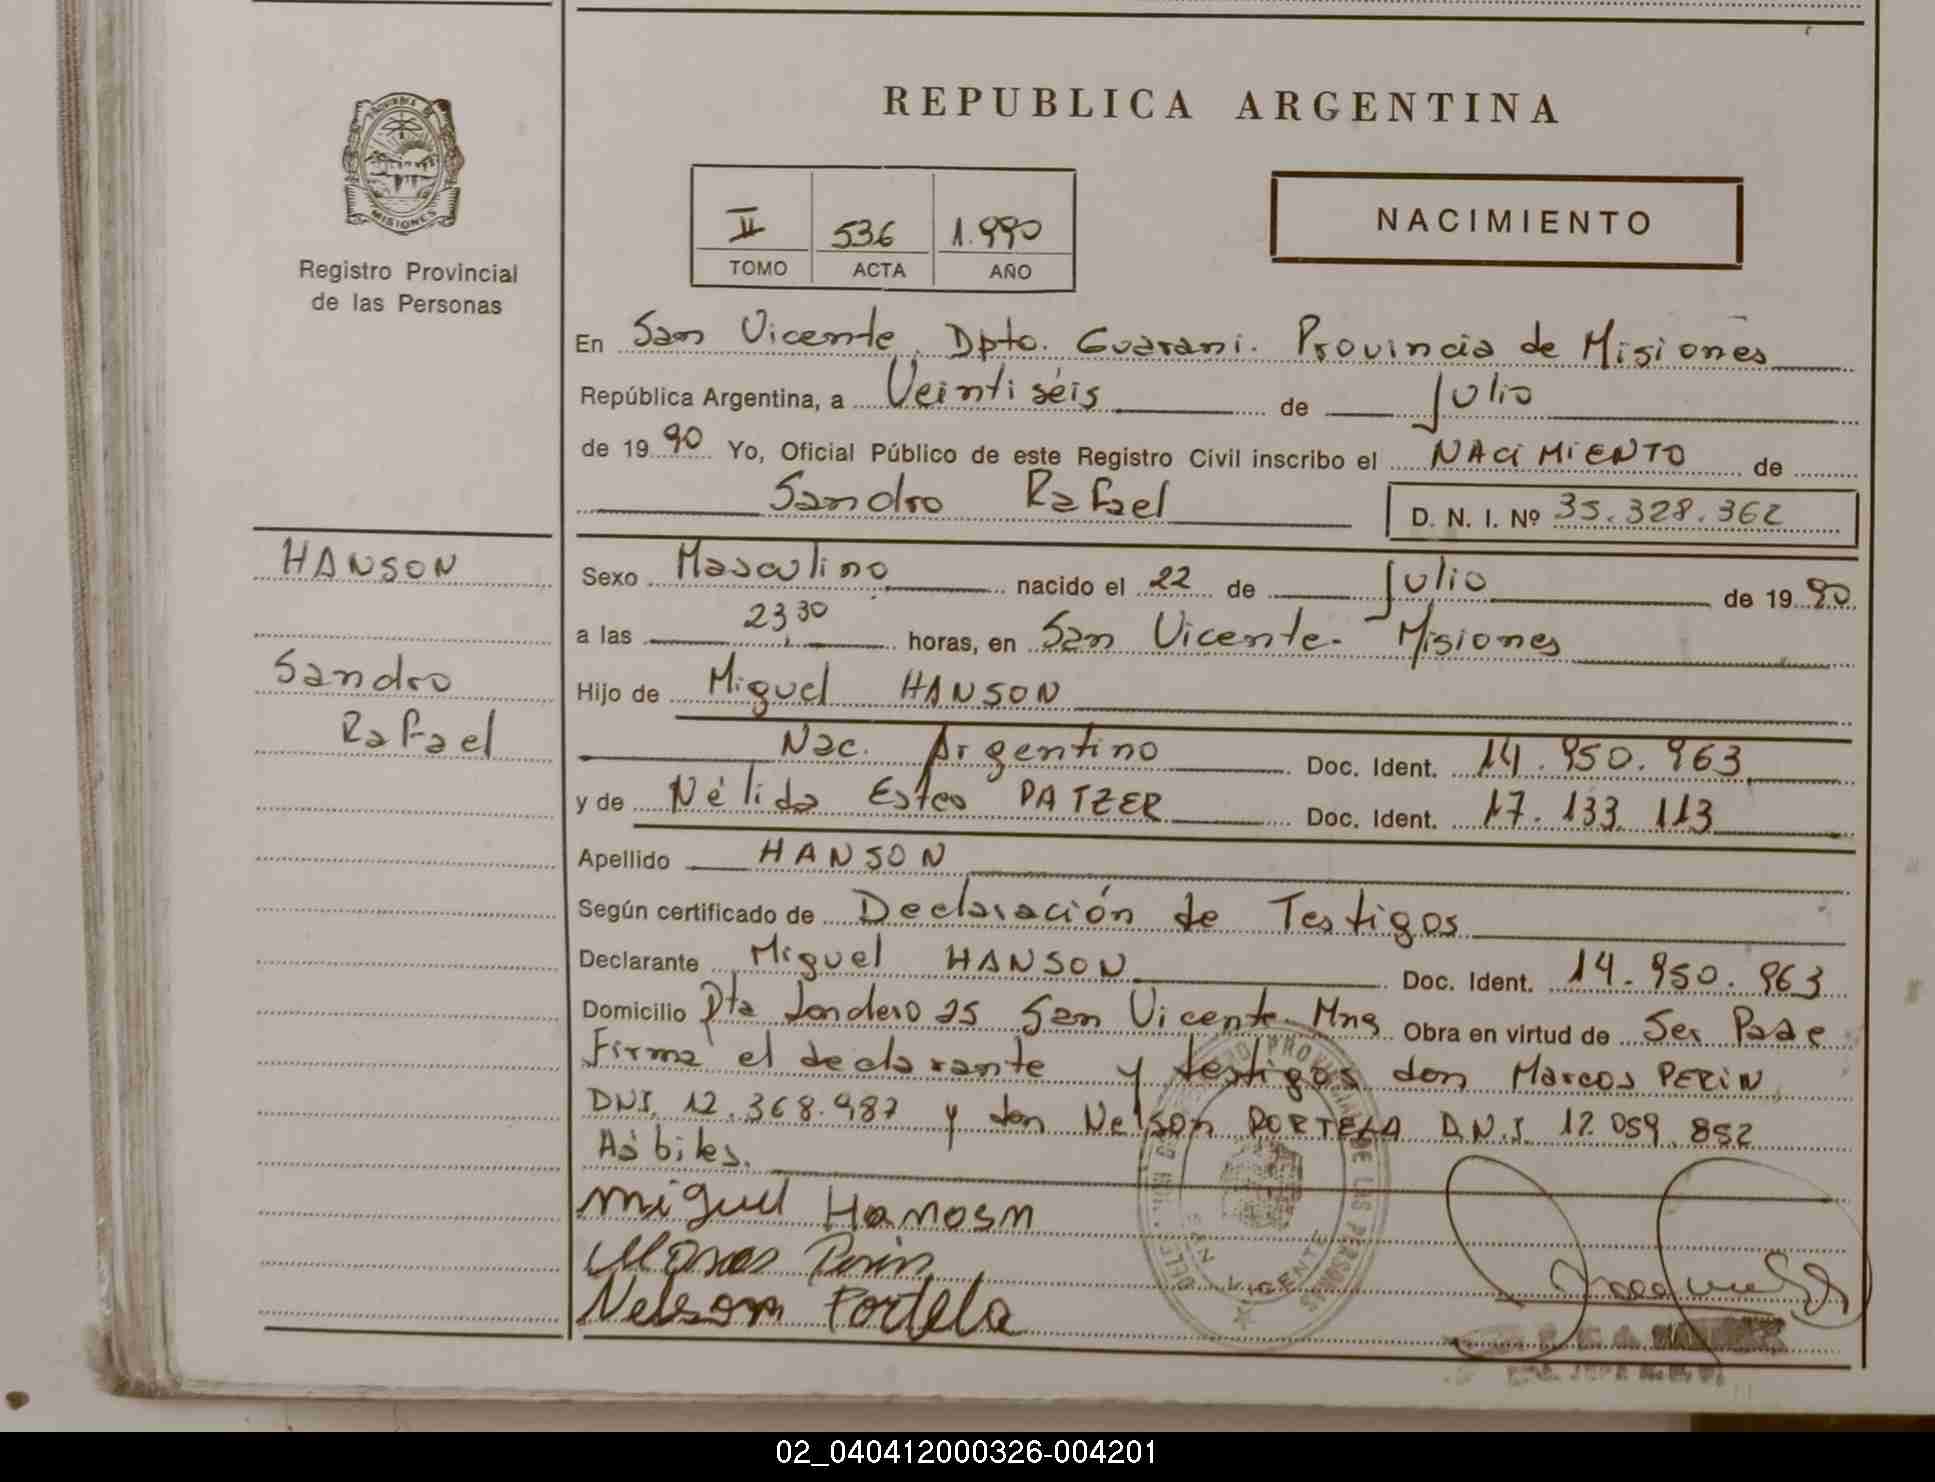 REPUBLICA ARGENTINA
PROVINCIA DE
MISIONES
Registro Provincial
de las Personas
II 536 1.990
TOMO ACTA AÑO
NACIMIENTO
En San Vicente, Dpto. Guarani. Provincia de Misiones
República Argentina, a Veinti séis de Julio
de 1990 Yo, Oficial Público de este Registro Civil inscribo el NACIMIENTO de
Sandro Rafael D. N. I. Nº 35.328.362
HANSON
Sandro
Rafael
Sexo Masculino nacido el 22 de Julio de 1990
a las 23,30 horas, en San Vicente- Misiones
Hijo de Miguel HANSON
Nac. Argentino Doc. Ident. 14.950.963
y de Nélida Ester PATZER Doc. Ident. 17.133.113
Apellido HANSON
Según certificado de Declaración de Testigos
Declarante Miguel HANSON Doc. Ident. 14.950.963
Domicilio Pta Londero 25 San Vicente Mns Obra en virtud de Ser Padre
Firma el declarante y testigos don Marcos PERIN
DNI. 12.368.987 y don Nelson PORTELA D.N.I. 12.059.852
Hábiles.
Miguel Hanosn
Marcos Perin
Nelson Portela
REGISTRO PROVINCIAL DE LAS PERSONAS
SAN VICENTE
02_040412000326-004201